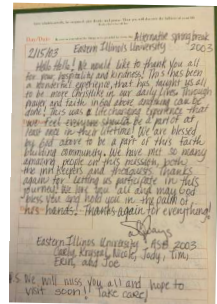 Alternative spring break
2/15/03 Eastern Illinois University 2003
Hello Hello! We would like to thank you all
for your hospitality and kindness! This has been
a wonderful experience, that has taught us all
to be more Christlike in our daily lives. Through
prayer and faith in God above anything can be
done! This was a life changing experience that
we feel everyone should be a part of at
least once in their lifetime! We are blessed
by God above to be a part of this faith
building community. We have met so many
amazing people on this mission, both
the innkeepers and the guests. Thanks
again for letting us participate in this
journey! We love you all and may God
bless you and hold you in the palm of
his hands. Thanks again for everything!
Eastern Illinois University - ASB 2003
Carla, Krystal, Nicole, Jody, Tim,
Erin, and Joe
P.S We will miss you all and hope to
visit soon! Take care,